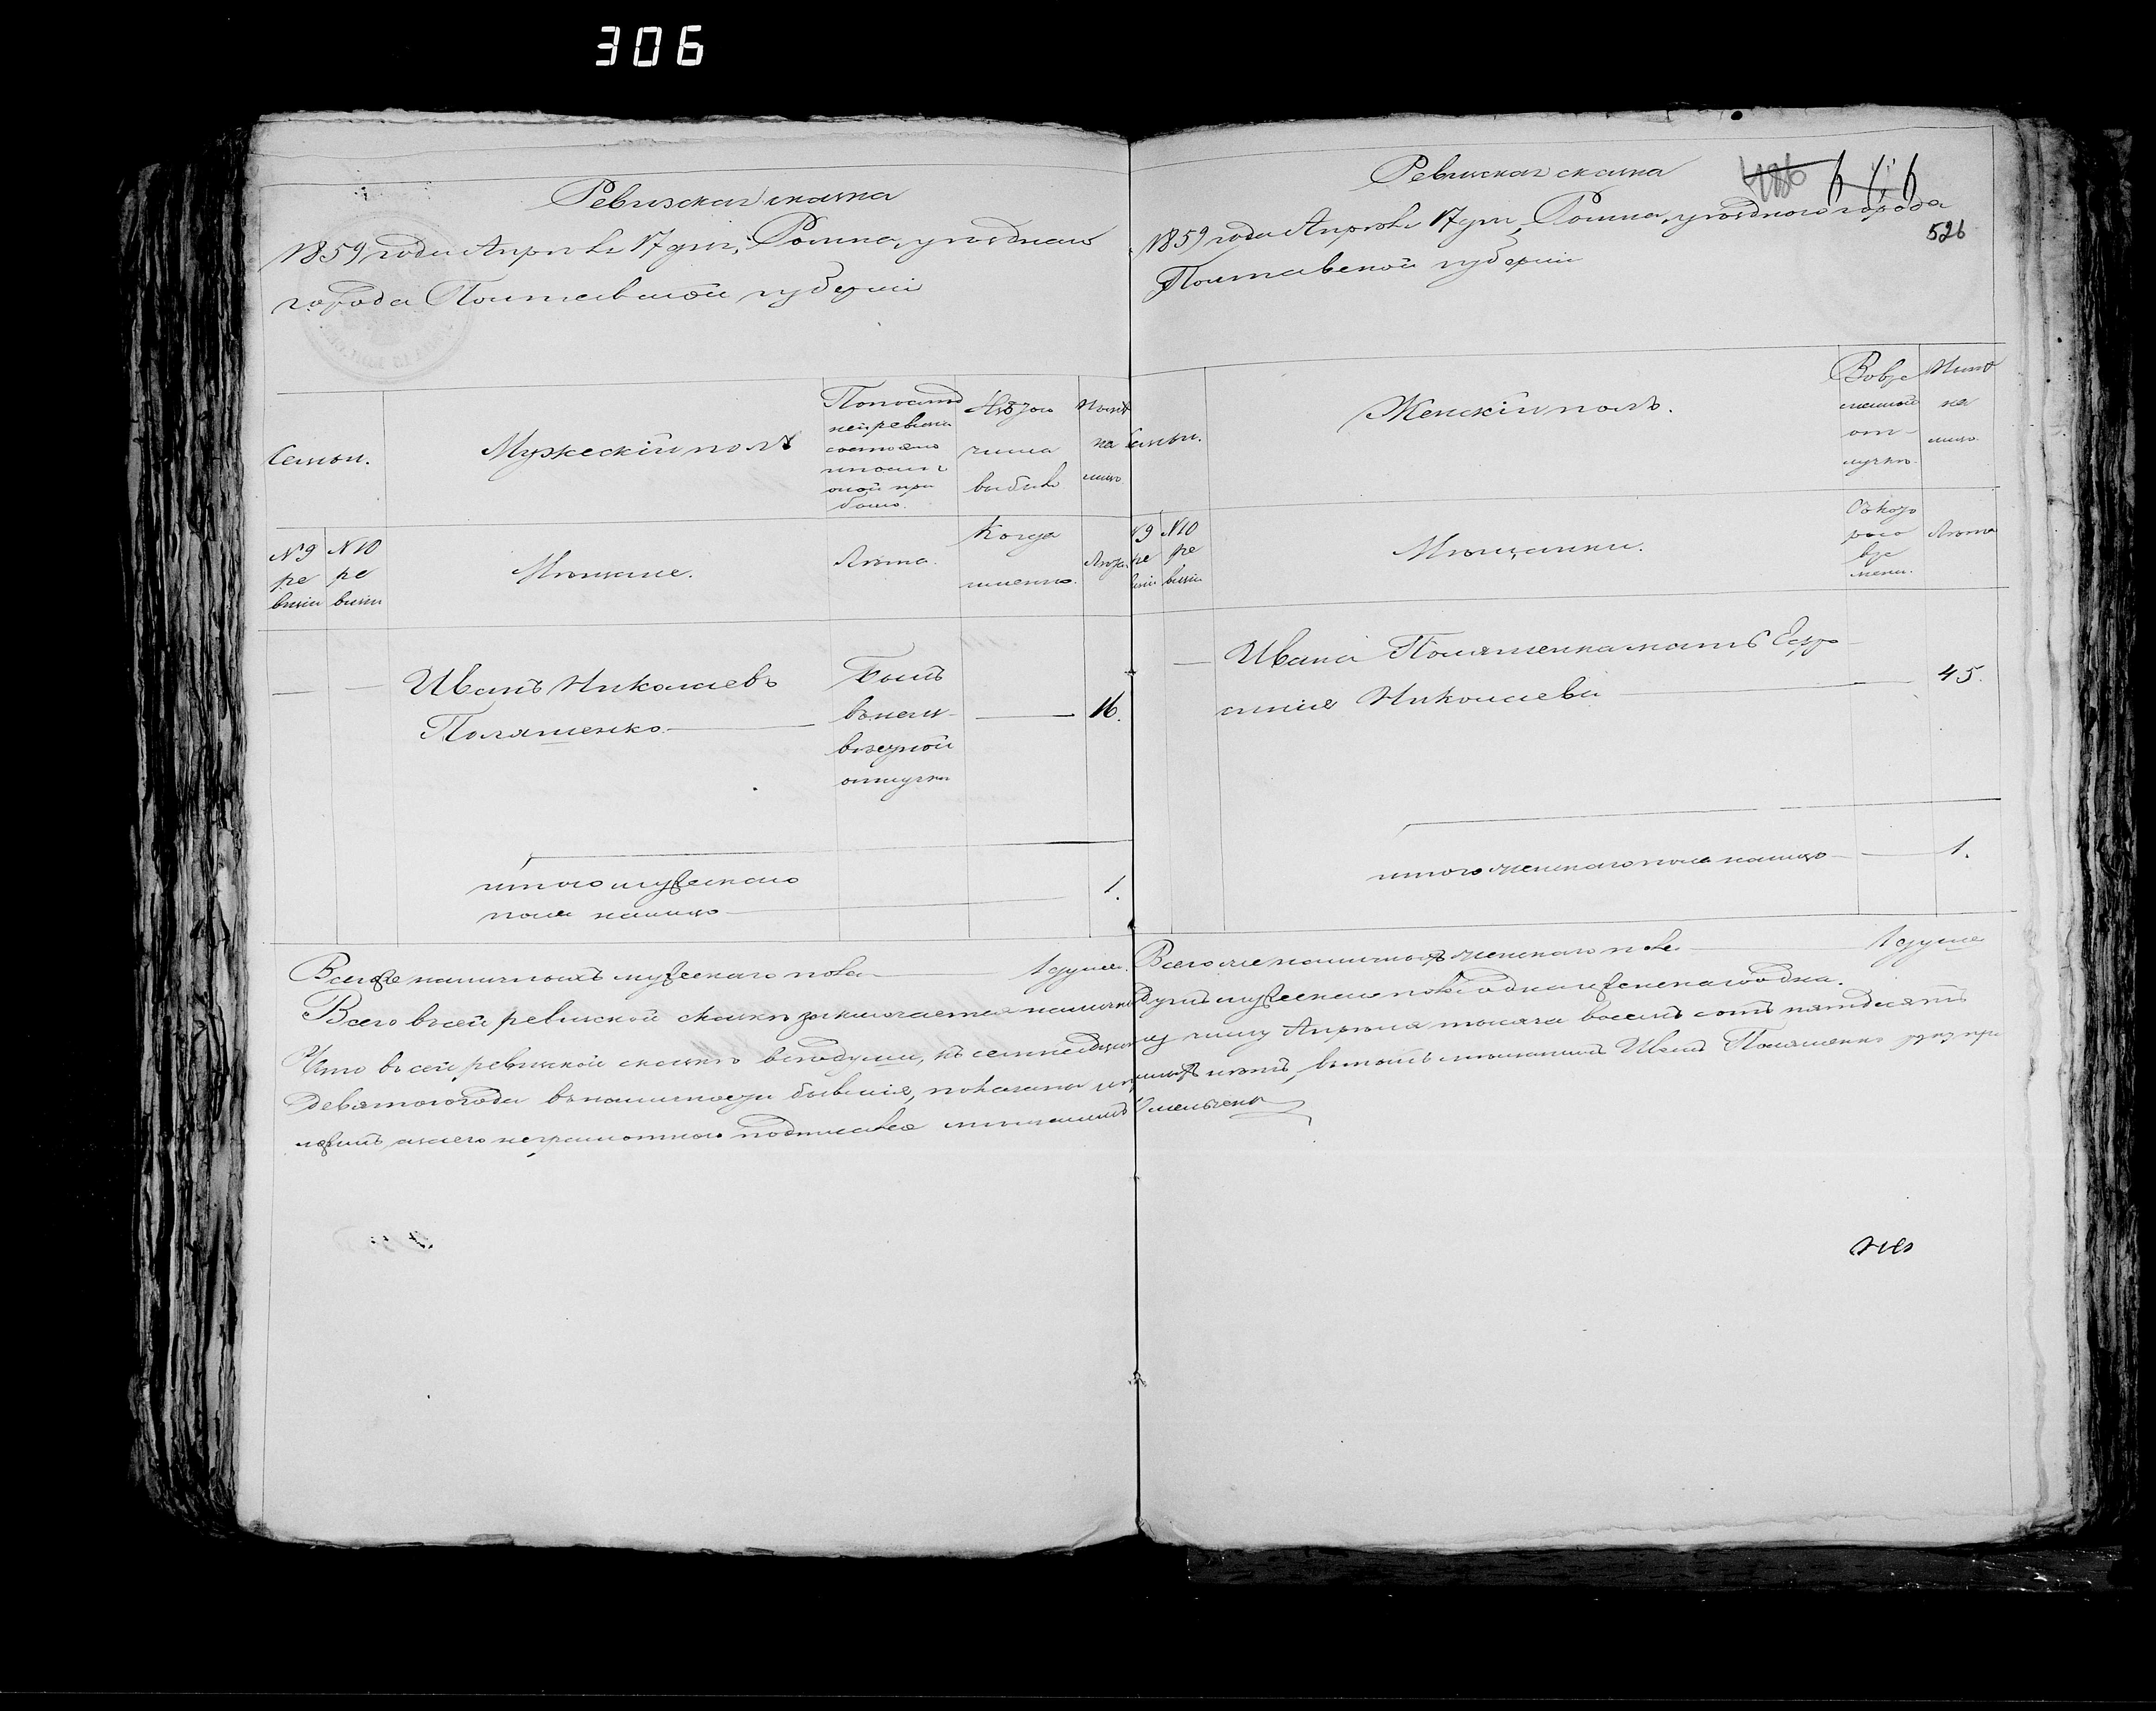 306
Ревизская сказка
1859 года Апреля 17 дня, Ромна, уезднаго
города Полтавской губернии
Семьи.
Мужескій полъ
По последней ревизіи состояло и после оной прибыло.
Изъ того числа выбыло
Ныне на лицо
№ 9 ревизіи
№ 10 ревизіи
Мещане.
Лета.
Когда именно.
Лета.
Иванъ Николаевъ
Поляшенко
Былъ
в неизвестной
отлучки
16.
Итого мужескаго
пола налицо
1.
Всего же наличныхъ мужескаго пола 1 душа.
Ревизская сказка
486 616
1859 года Апреля 17 дня, Ромна, уезднаго города
526
Полтавской губерніи
Семьи.
Женскій полъ.
Во временной отлучке
Ныне на лицо.
№ 9 ревизіи
№ 10 ревизіи
Мещанки.
Съ котораго времени.
Лета
Ивана Поляшенка мать Ефросиния Николаева
45.
итого женскаго пола налицо 1.
Всего же наличныхъ женскаго пола 1 душа
Всего в сей ревизской сказке заключается наличныхъ душъ мужескаго пола одна и женскаго одна.
Что в сей ревизской сказке все души, къ семнадцатому числу Апреля тысяча восемь сотъ пятдесятъ
девятого года в наличности бывшие, показаны и прописныхъ нетъ, в томъ мещанинъ Иванъ Поляшенко руку при
ложилъ, а за его неграмотного подписался мещанинъ